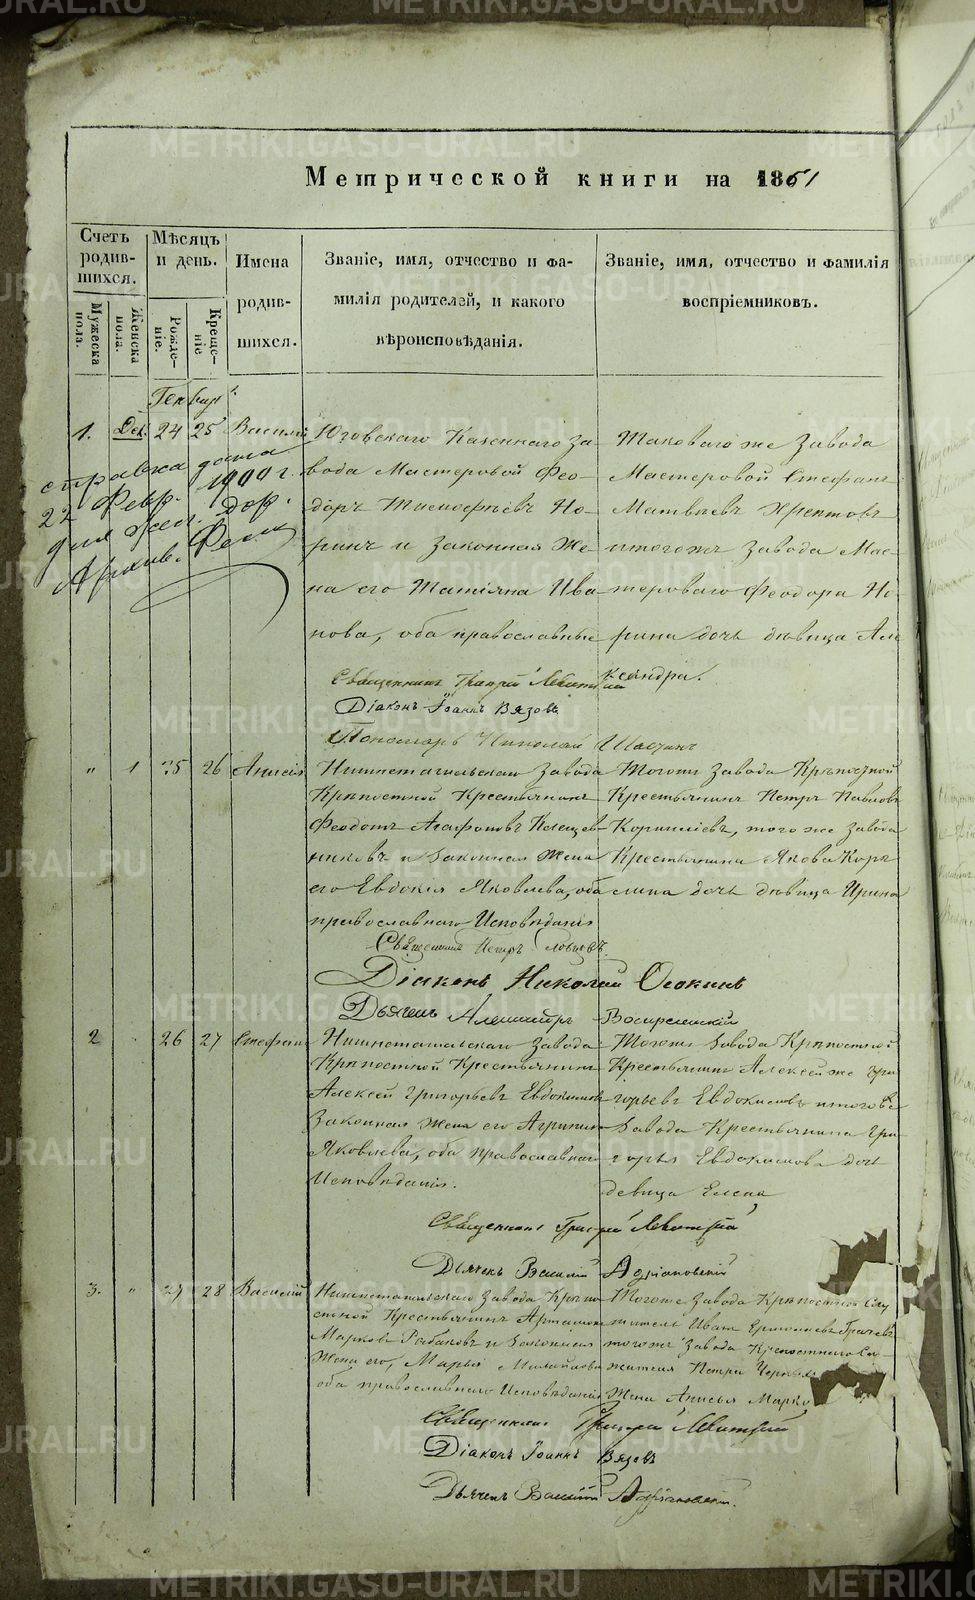 Метрической книги на 1861
Счетъ родив- шихся.
Мѣсяцъ и день.
Имена родив- шихся.
Званіе, имя, отчество и фа-
милія родителей, и какого
вѣроисповѣданія.
Званіе, имя, отчество и фамилія
воспріемниковъ.
Мужеска пола.
Женска пола.
Рожде- ніе.
Креще- ніе
1. Дек. 24 25 Василій
справка дана
22 Февр. 1900 г.
Казеннаго За-
вода Мастеровой Фео-
доръ Тимофѣевъ Но-
ринъ и законная Же-
на его Татіяна Ива-
нова, оба православные
Таковаго же Завода
Мастеровой Стефанъ
Матвѣевъ
итогожъ Завода Мас-
тероваго Феодора Но-
рина дочь дѣвица Але
ксандра.
Священникъ Григорій Левитскій
Діаконъ Іоаннъ Вязовъ
Пономарь Николай
" 1 25 26 Анисія
Нижнетагильскаго Завода
Крѣпостной Крестьянинъ
Феодотъ Агафоновъ
и Законная Жена
его Евдокія Яковлева, оба
православнаго Исповѣданія
Тогожъ Завода Крѣпостной
Крестьянинъ Петръ Павловъ
Корниліевъ, того же Завода
Крестьянина Якова
дочь дѣвица Ирина
Священникъ Петръ
Діаконъ Николай Осокинъ
Дьячекъ Александръ Воскресенскій
2 " 26 27 Стефанъ
Нижнетагильскаго Завода
Крѣпостной Крестьянинъ
Алексей Григорьевъ Евдокимовъ
Законная Жена его Агрипина
Яковлева, оба православнаго
Исповѣданія.
Тогожъ Завода Крѣпостной
Крестьянинъ Алексей же Гри
горьевъ Евдокимовъ итогоже
Завода Крестьянина Гри
горья Евдокимова дочь
девица Елена
Священникъ Григорій Левитскій
Дьячекъ Василій Адріановскій
3. " 27 28 Василій
Нижнетагильскаго Завода Крѣпо
стной Крестьянинъ Артамонъ
Марковъ Рыбаковъ и Законная
Жена его, Марья Михайлова
оба православнаго Исповѣданія
Тогоже Завода Крѣпостной Слу
житель Иванъ Ермолаевъ Грачевъ
тогожъ Завода Крепостнаго Слу-
жителя Петра
Жена Анисья Марко
Священникъ Григорій Левитскій
Діаконъ Іоаннъ Вязовъ
Дьячекъ Василій Адріановскій.
METRIKI.GASO-URAL.RU